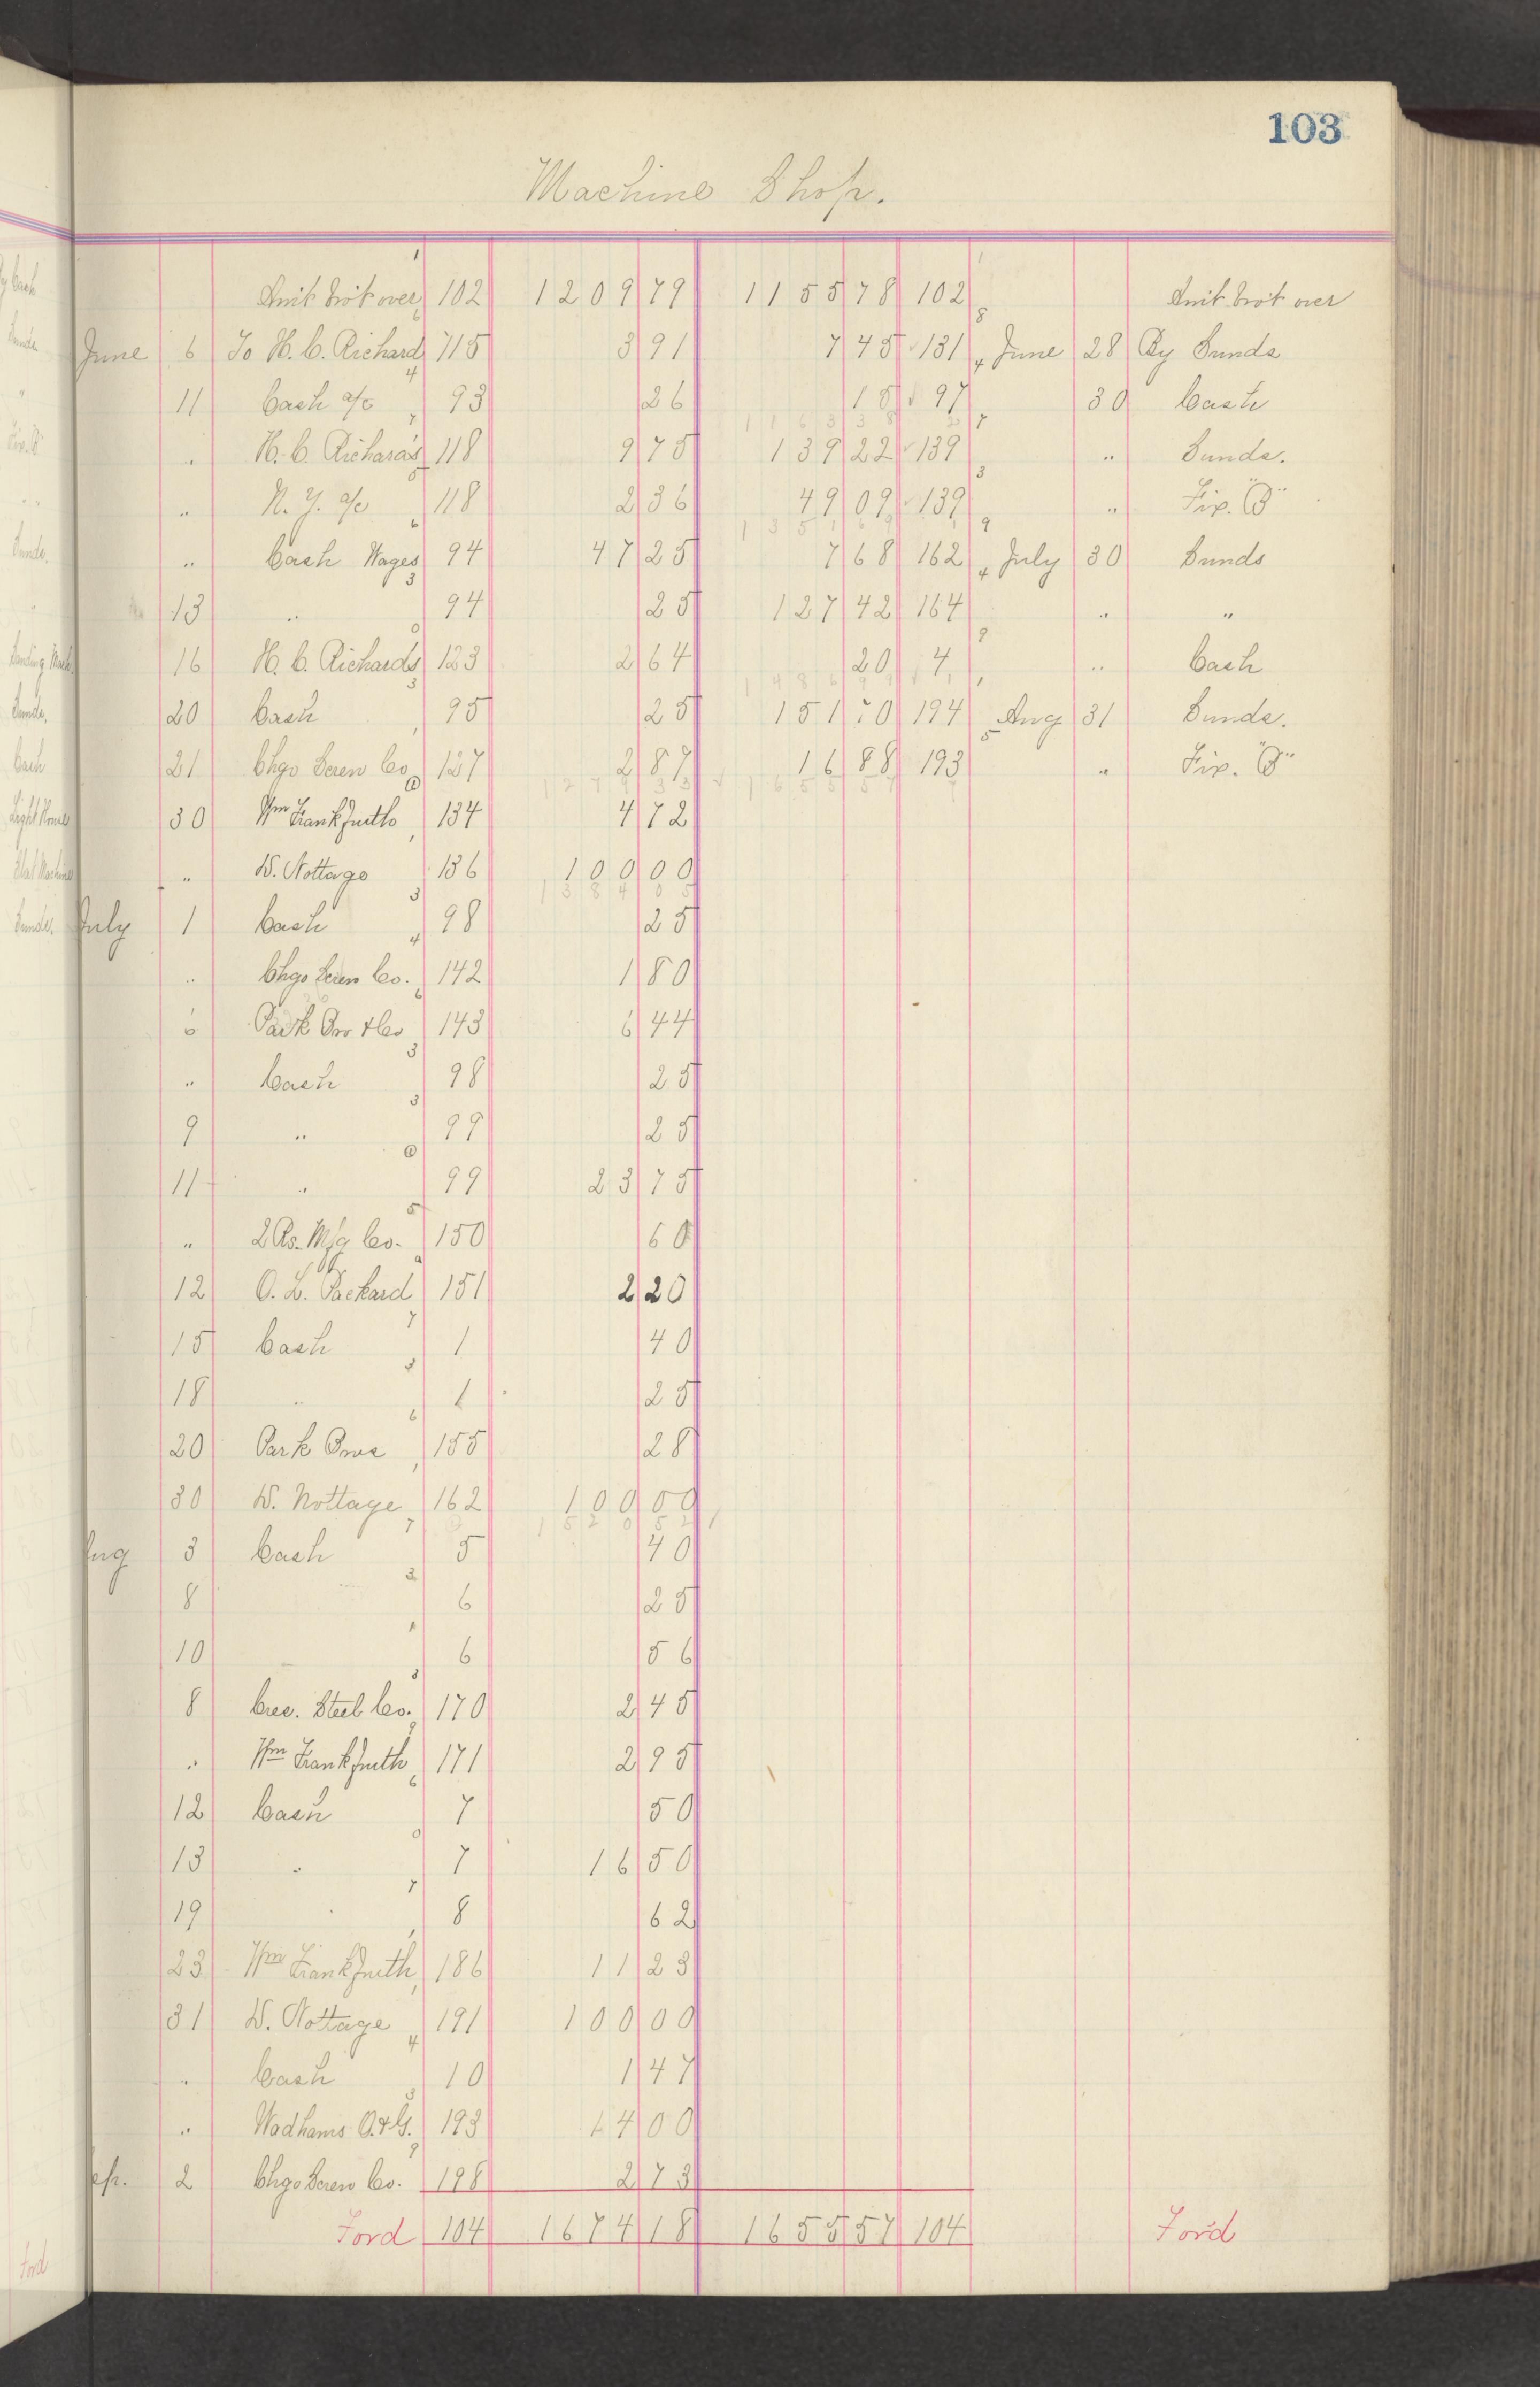 103
Machine Shop.
Amt brot over 102 1209 79 1155 78 102 Amt brot over
June 6 To H. C. Richard 115 3 91 7 45 131 June 28 By Sunds
11 Cash a/c 93 26 15 97 30 Cash
" H. C. Richards 118 9 75 139 22 139 " Sunds.
" N. Y. a/c 118 2 36 49 09 139 " Fix. "B"
" Cash Wages 94 47 25 7 68 162 July 30 Sunds
13 " 94 25 127 42 164 " "
16 H. C. Richards 123 2 64 20 4 " Cash
20 Cash 95 25 151 70 194 Aug 31 Sunds.
21 Chgo Screw Co 127 2 87 16 88 193 " Fix. "B"
30 Wm Frankfurth 134 4 72
" W. Nottage 136 100 00
July 1 Cash 98 25
" Chgo Screw Co. 142 1 80
6 Park Bro & Co 143 6 44
" Cash 98 25
9 " 99 25
11 " 99 23 75
" 2 Rs. Mfg Co. 150 60
12 O. L. Packard 151 2 20
15 Cash 1 40
18 " 1 25
20 Park Bros 155 28
30 W. Nottage 162 100 00
Aug 3 Cash 5 40
8 6 25
10 6 56
8 Cres. Steel Co. 170 2 45
" Wm Frankfurth 171 2 95
12 Cash 7 50
13 " 7 16 50
19 8 62
23 Wm Frankfurth 186 11 23
31 W. Nottage 191 100 00
" Cash 10 1 47
" Wadhams O. & G. 193 14 00
Sep. 2 Chgo Screw Co. 198 2 73
Ford 104 1674 18 1655 57 104 Ford